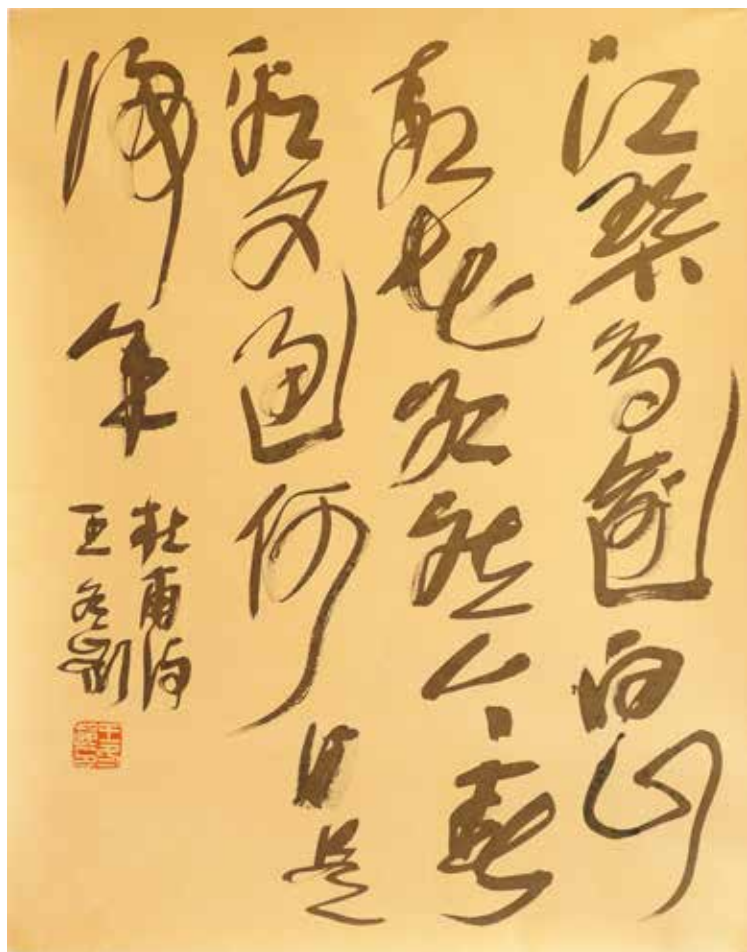 江碧鳥逾白山
青花欲然今春
看又過何日是
歸年
杜甫詩
王冬齡